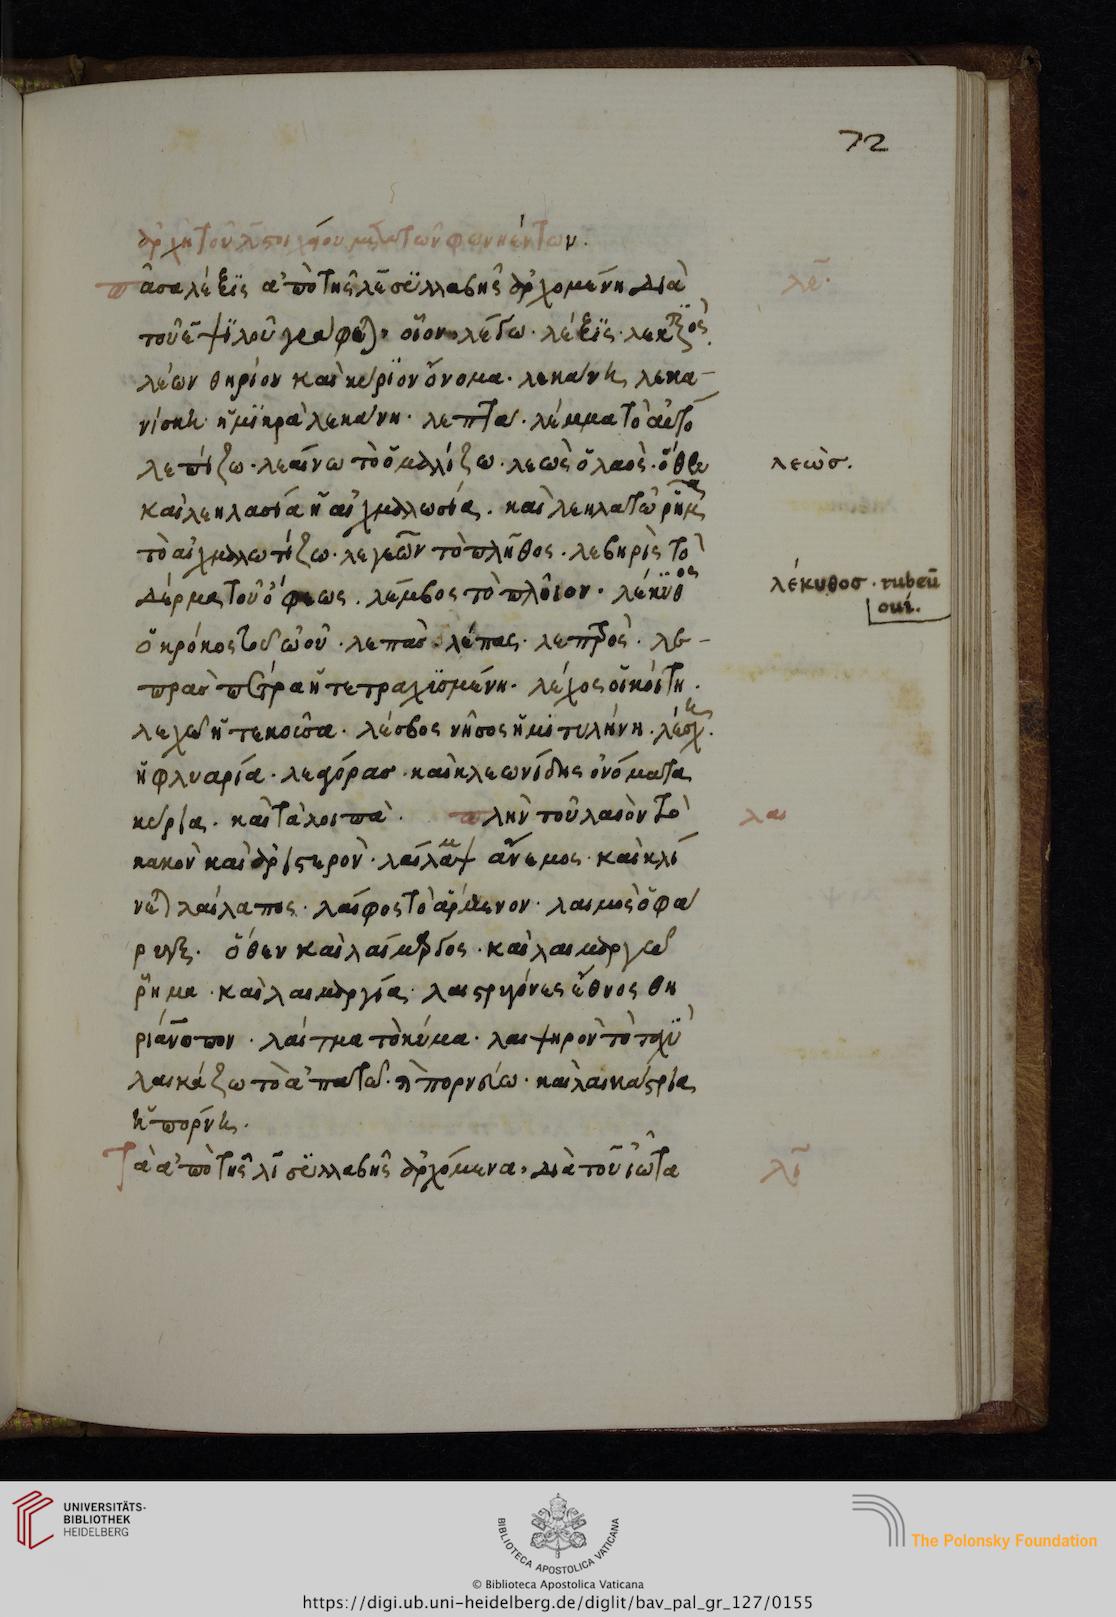 72
ἀρχὴ τοῦ λ στοιχείου μετὰ τῶν φωνηέντων.
πᾶσα λέξϊς ἀπὸ τῆς λε συλλαβῆς ἀρχομένη διὰ
λε·
τοῦ ε ψϊλοῦ γράφεται· οἷον λέγω· λέξϊς· λεκτέος·
λέων θηρίον καὶ κύρϊον ὄνομα· λεκάνη, λεκα-
νίσκη ἡ μϊκρὰ λεκάνη· λεπτά· λέμμα τὸ αὐτὸ
λεπίζω· λεαίνω τὸ ὁμαλίζω· λεὼς ὁ λαός· ὅθεν
λεὼσ.
καὶ λεηλασία ἡ αἰχμαλωσία. καὶ λεηλατῶ ῥῆμα
τὸ αἰχμαλωτίζω· λεγεῶν τὸ πλῆθος· λεβηρὶς τὸ
δέρμα τοῦ ὄφεως. λέμβος τὸ πλοῖον· λέκϋθος
λέκυθοσ · rubeū
oui.
ὁ κρόκος τοῦ ὠοῦ · λεπὰσ λέπας· λεπτός· λε-
πρασ πέτρα ἡ τετραχϊσμένη· λέχος ἡ κοίτη·
λεχὼ ἡ τεκοῦσα· λέσβος νῆσος ἡ μϊτυλήνη· λέσχη·
ἡ φλυαρία· καὶ κλεωνίδης ὀνόματα
κύρια. καὶ τὰ λοιπά. πλὴν τοῦ λαιὸν τὸ
λαι
κακὸν καὶ ἀριστερόν· λαῖλαψ ἄνεμος· καὶ κλί
νεται λαίλαπος· λαῖφος τὸ ἄρμενον· λαιμὸς ὁ φά
ρυγξ. ὅθεν καὶ λαίμαργος· καὶ λαιμαργῶ
ῥῆμα· καὶ λαιμαργία· λαιστρυγόνες ἔθνος θη
ριάνθρωπον· λαῖτμα τὸ κύμα· λαιψηρὸν τὸ ταχὺ
λαικάζω τὸ ἀπατῶ· ἢ πορνεύω· καὶ λαικάστρια,
ἡ πόρνη.
Τὰ ἀπὸ τῆς λι συλλαβῆς ἀρχόμενα· διὰ τοῦ ἰῶτα
λι
UNIVERSITÄTS-
BIBLIOTHEK
HEIDELBERG
BIBLIOTECA APOSTOLICA VATICANA
The Polonsky Foundation
© Biblioteca Apostolica Vaticana
https://digi.ub.uni-heidelberg.de/diglit/bav_pal_gr_127/0155